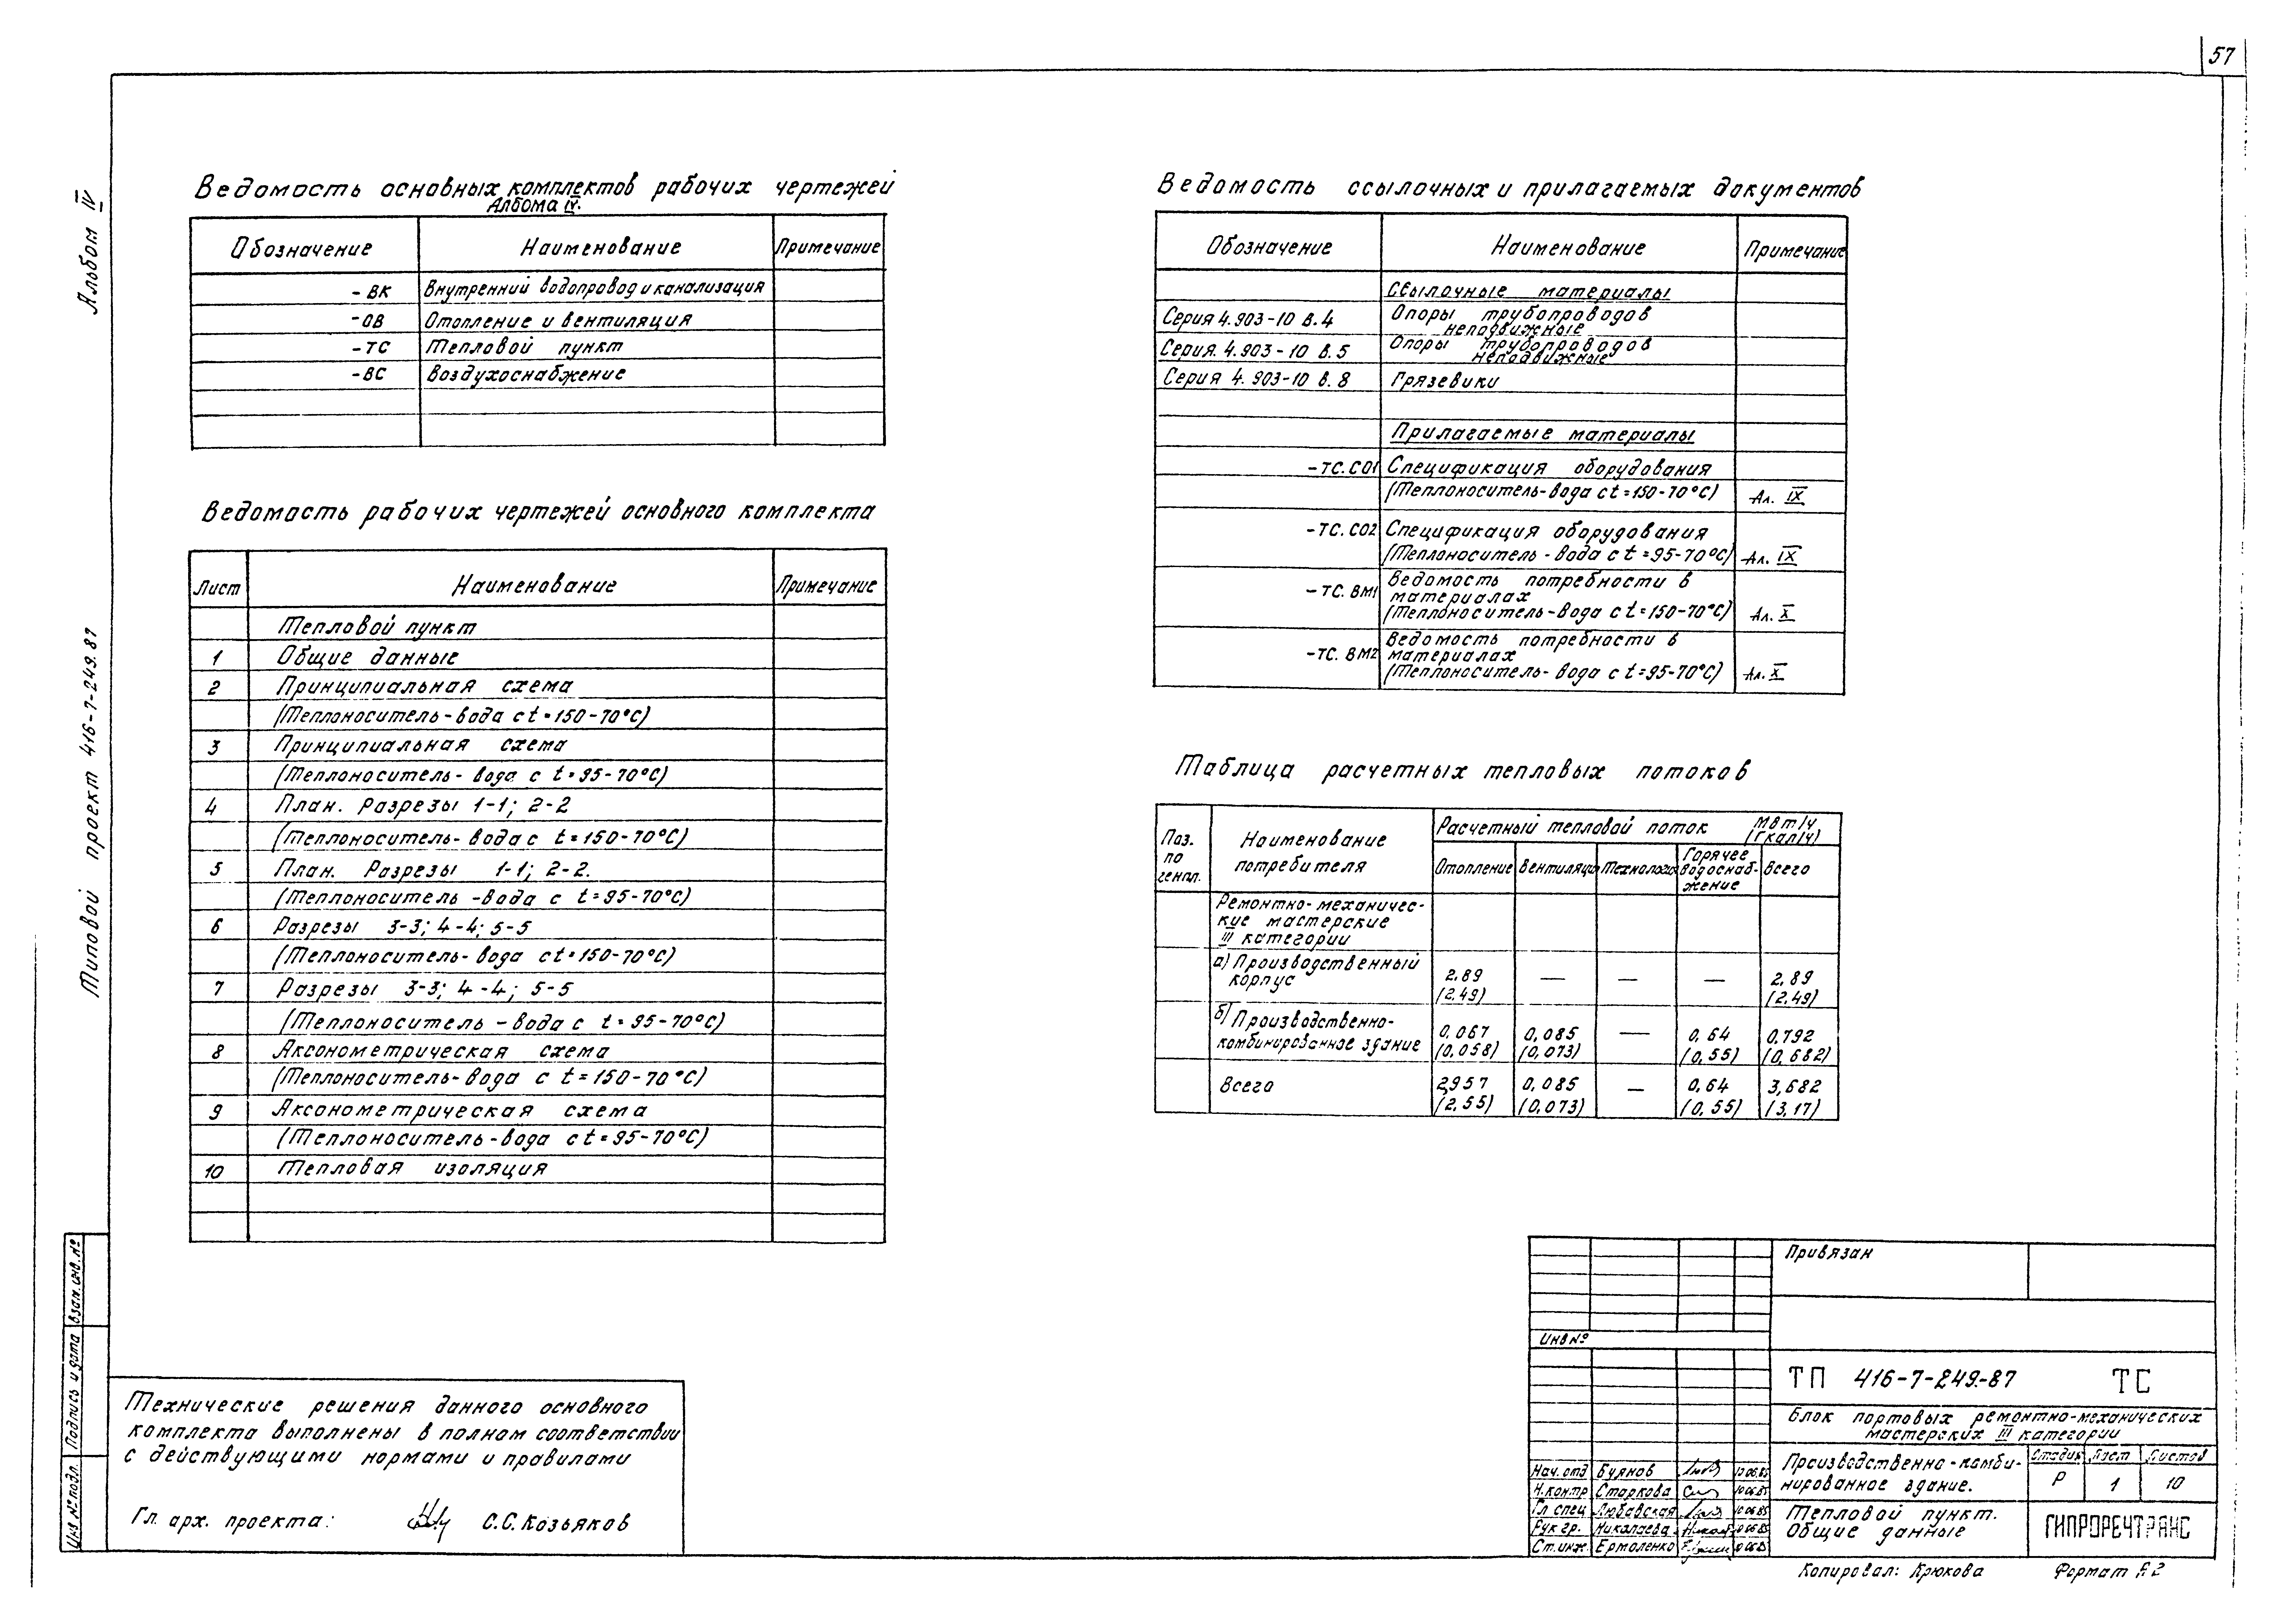 57
Альбом IV
Типовой проект 416-7-249.87
Ведомость основных комплектов рабочих чертежей
Албома IV.
Обозначение Наименование Примечание
-ВК Внутренний водопровод и канализация
-ОВ Отопление и вентиляция
-ТС Тепловой пункт
-ВС Воздухоснабжение
Ведомость рабочих чертежей основного комплекта
Лист Наименование Примечание
Тепловой пункт
1 Общие данные
2 Принципиальная схема
(Теплоноситель-вода с t=150-70°С)
3 Принципиальная схема
(Теплоноситель-вода с t=95-70°С)
4 План. Разрезы 1-1; 2-2
(Теплоноситель-вода с t=150-70°С)
5 План. Разрезы 1-1; 2-2.
(Теплоноситель-вода с t=95-70°С)
6 Разрезы 3-3; 4-4; 5-5
(Теплоноситель-вода с t=150-70°С)
7 Разрезы 3-3; 4-4; 5-5
(Теплоноситель-вода с t=95-70°С)
8 Аксонометрическая схема
(Теплоноситель-вода с t=150-70°С)
9 Аксонометрическая схема
(Теплоноситель-вода с t=95-70°С)
10 Тепловая изоляция
Ведомость ссылочных и прилагаемых документов
Обозначение Наименование Примечание
Ссылочные материалы
Серия 4.903-10 в.4 Опоры трубопроводов
неподвижные
Серия. 4.903-10 в.5 Опоры трубопроводов
неподвижные
Серия 4.903-10 в.8 Грязевики
Прилагаемые материалы
-ТС.СО1 Спецификация оборудования
(Теплоноситель-вода с t=150-70°С) Ал. IX
-ТС.СО2 Спецификация оборудования
(Теплоноситель-вода с t=95-70°С) Ал. IX
-ТС.ВМ1 Ведомость потребности в
материалах
(Теплоноситель-вода с t=150-70°С) Ал. X
-ТС.ВМ2 Ведомость потребности в
материалах
(Теплоноситель-вода с t=95-70°С) Ал. X
Таблица расчетных тепловых потоков
Поз. по генпл. Наименование потребителя Расчетный тепловой поток МВт/ч (Гкал/ч)
Отопление Вентиляци Технологи Горячее водоснаб-жение Всего
Ремонтно-механичес-
кие мастерские
III категории
а) Производственный
корпус 2.89 — — — 2.89
(2.49) (2.49)
б) Производственно- 0,067 0,085 — 0,64 0.792
комбинированное здание (0,058) (0,073) (0,55) (0,682)
Всего 2,957 0,085 — 0,64 3,682
(2.55) (0,073) (0,55) (3,17)
Взам. инв. №
Подпись и дата
Инв № подл.
Технические решения данного основного
комплекта выполнены в полном соответствии
с действующими нормами и правилами
Гл. арх. проекта: С.С. Козьяков
Привязан
Инв №
ТП 416-7-249.-87 ТС
Блок портовых ремонтно-механических
мастерских III категории
Нач. отд Буянов
Н. контр Старкова
Гл спец Любавская
Рук гр. Николаева
Ст. инж. Ермоленко
Производственно-комби-
нированное здание.
Стадия Лист Листов
Р 1 10
Тепловой пункт.
Общие данные
ГИПРОРЕЧТРАНС
Копировал: Крюкова Формат А2